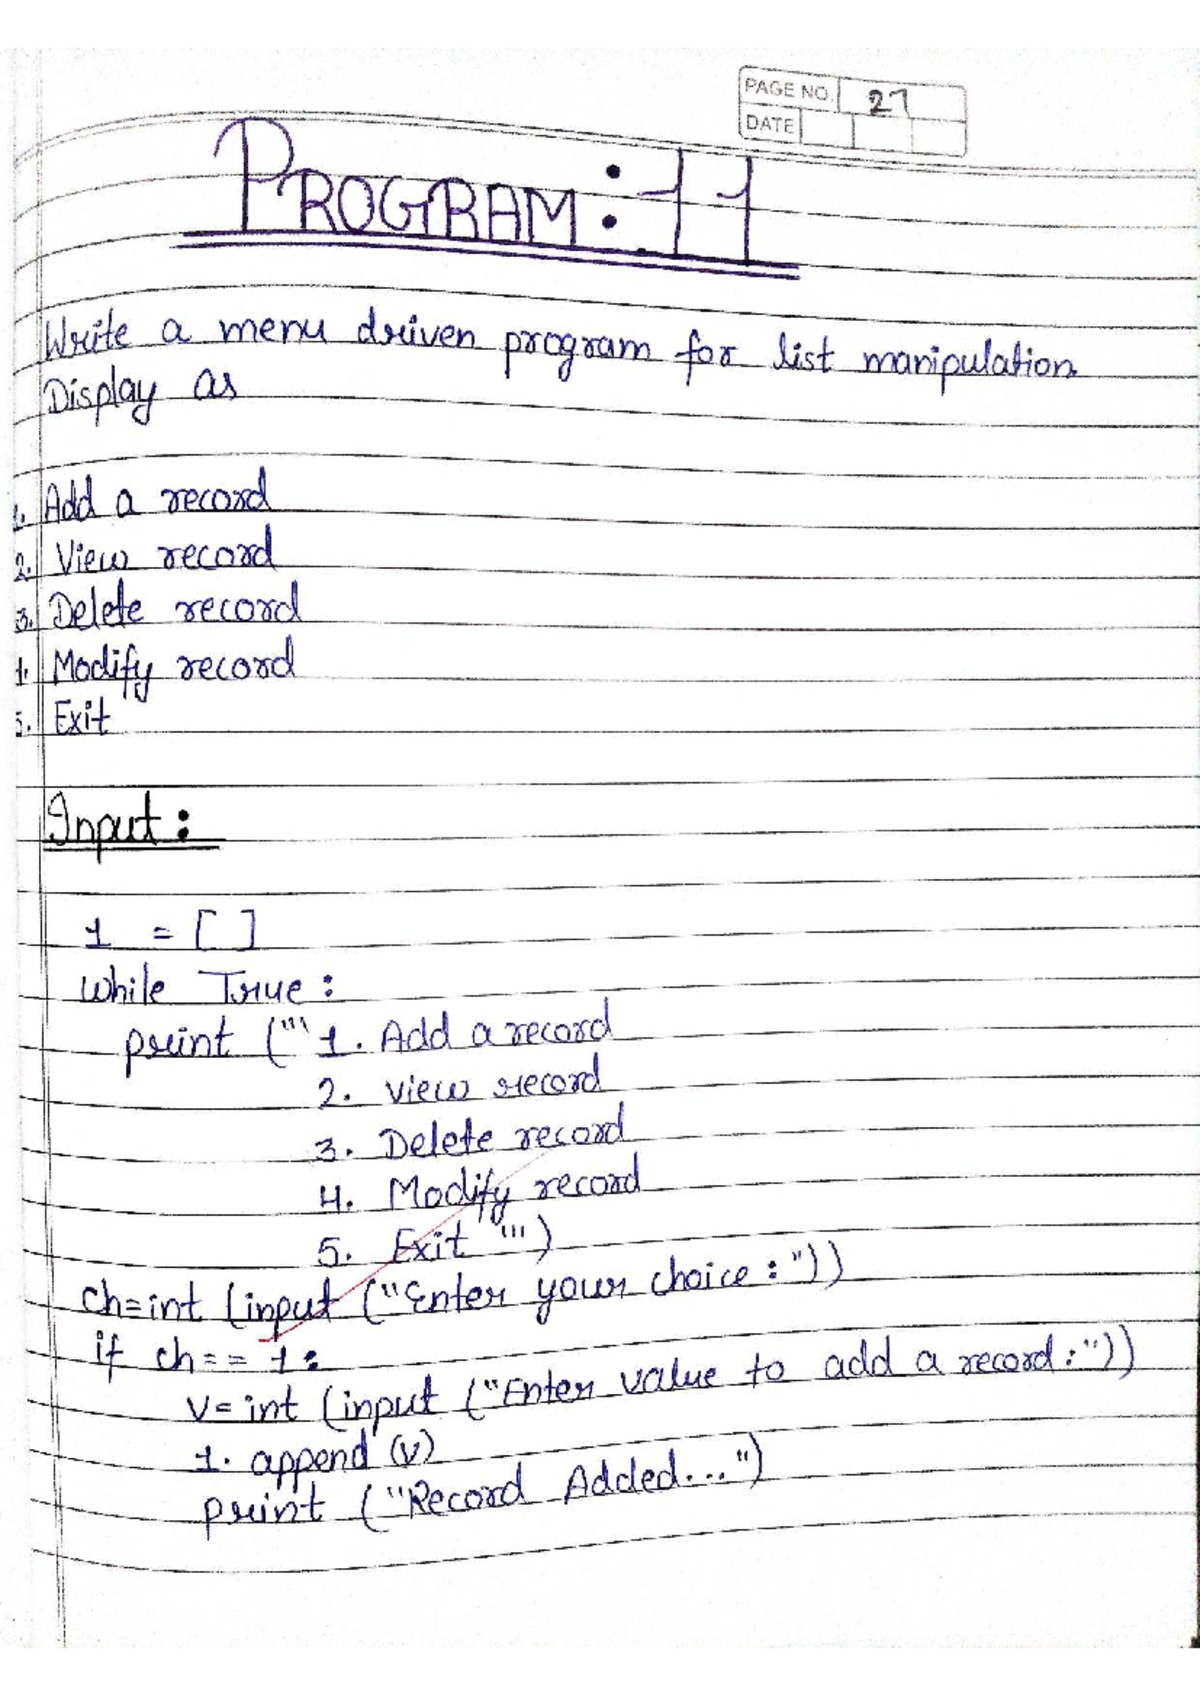 PAGE NO. 27
DATE
PROGRAM: 11
Write a menu driven program for list manipulation
Display as
1. Add a record
2. View record
3. Delete record
4. Modify record
5. Exit
Input:
1 = [ ]
while True:
print ('''1. Add a record
2. view record
3. Delete record
4. Modify record
5. Exit ''')
ch=int (input ("Enter your choice : "))
if ch== 1:
v= int (input ("Enter value to add a record : "))
1. append (v)
print ("Record Added...")